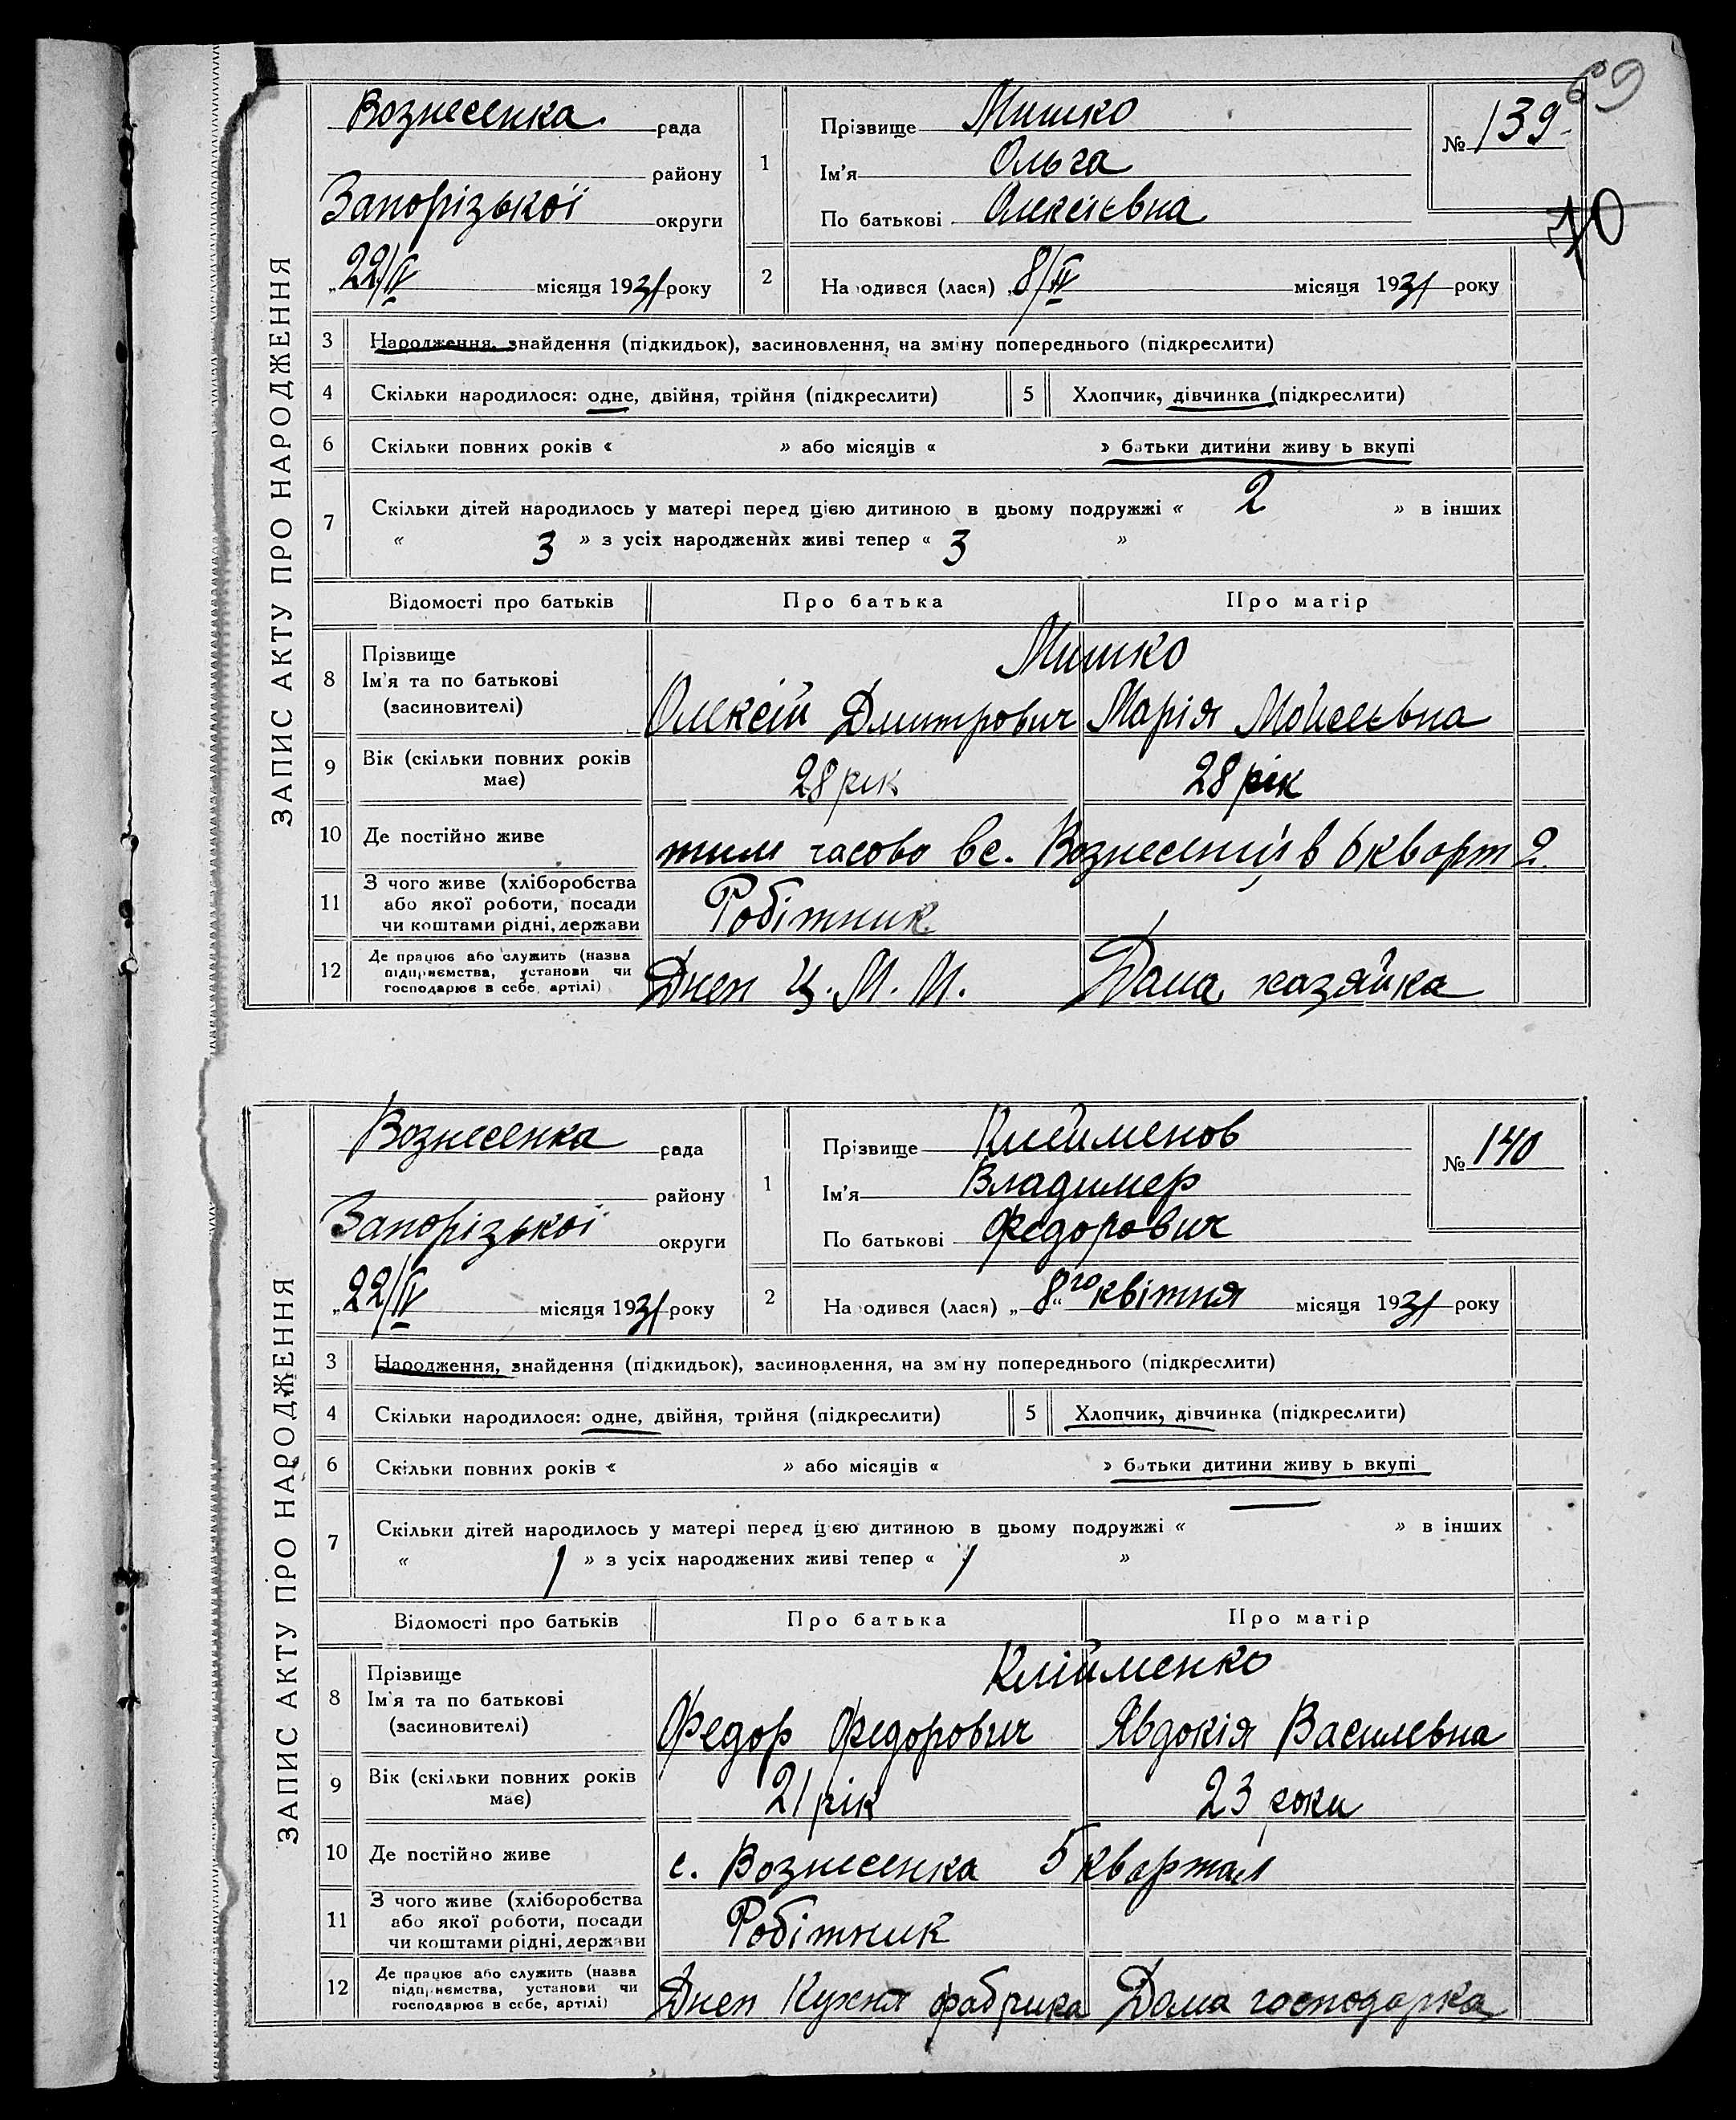 69
70
ЗАПИС АКТУ ПРО НАРОДЖЕННЯ
Вознесенка рада
району
Запорізької округи
„22/IV місяця 1931 року
1 Прізвище Мишко
Ім'я Ольга
По батькові Олексієвна
№ 139
2 На одився (лася) „8/IV місяця 1931 року
3 Народження, знайдення (підкидьок), засиновлення, на зміну попереднього (підкреслити)
4 Скільки народилося: одне, двійня, трійня (підкреслити) 5 Хлопчик, дівчинка (підкреслити)
6 Скільки повних років « » або місяців « » батьки дитини живу ь вкупі
7 Скільки дітей народилось у матері перед цією дитиною в цьому подружжі « 2 » в інших
« 3 » з усіх народжених живі тепер « 3 »
Відомості про батьків Про батька Про матір
8 Прізвище
Ім'я та по батькові
(засиновителі)
Мишко
Олексій Дмитрович Марія Мойсеєвна
9 Вік (скільки повних років має) 28 рік 28 рік
10 Де постійно живе тим часово в с. Вознесенці в 6 кварт 2
11 З чого живе (хліборобства або якої роботи, посади чи коштами рідні, держави Робітник
12 Де працює або служить (назва підприємства, установи чи господарює в себе, артілі) Днеп Ц. М. М. Дома хазяйка
ЗАПИС АКТУ ПРО НАРОДЖЕННЯ
Вознесенка рада
району
Запорізької округи
„22/IV місяця 1931 року
1 Прізвище Клейменов
Ім'я Владимер
По батькові Федорович
№ 140
2 На одився (лася) „8го“ квітня місяця 1931 року
3 Народження, знайдення (підкидьок), засиновлення, на зм ну попереднього (підкреслити)
4 Скільки народилося: одне, двійня, трійня (підкреслити) 5 Хлопчик, дівчинка (підкреслити)
6 Скільки повних років « » або місяців « » батьки дитини живу ь вкупі
7 Скільки дітей народилось у матері перед цією дитиною в цьому подружжі « — » в інших
« 1 » з усіх народжених живі тепер « 1 »
Відомості про батьків Про батька Про матір
8 Прізвище
Ім'я та по батькові
(засиновителі)
Клійменко
Федор Федорович Явдокія Василевна
9 Вік (скільки повних років має) 21 рік 23 роки
10 Де постійно живе с. Вознесенка 5 квартал
11 З чого живе (хліборобства або якої роботи, посади чи коштами рідні, держави Робітник
12 Де працює або служить (назва підприємства, установи чи господарює в себе, артілі) Днеп Кухня фабрика Дома господарка